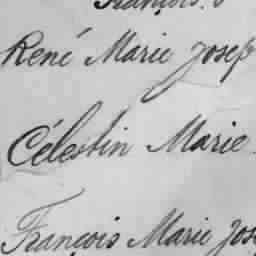 François.
René Marie Josep
Célestin Marie
François Marie Jos